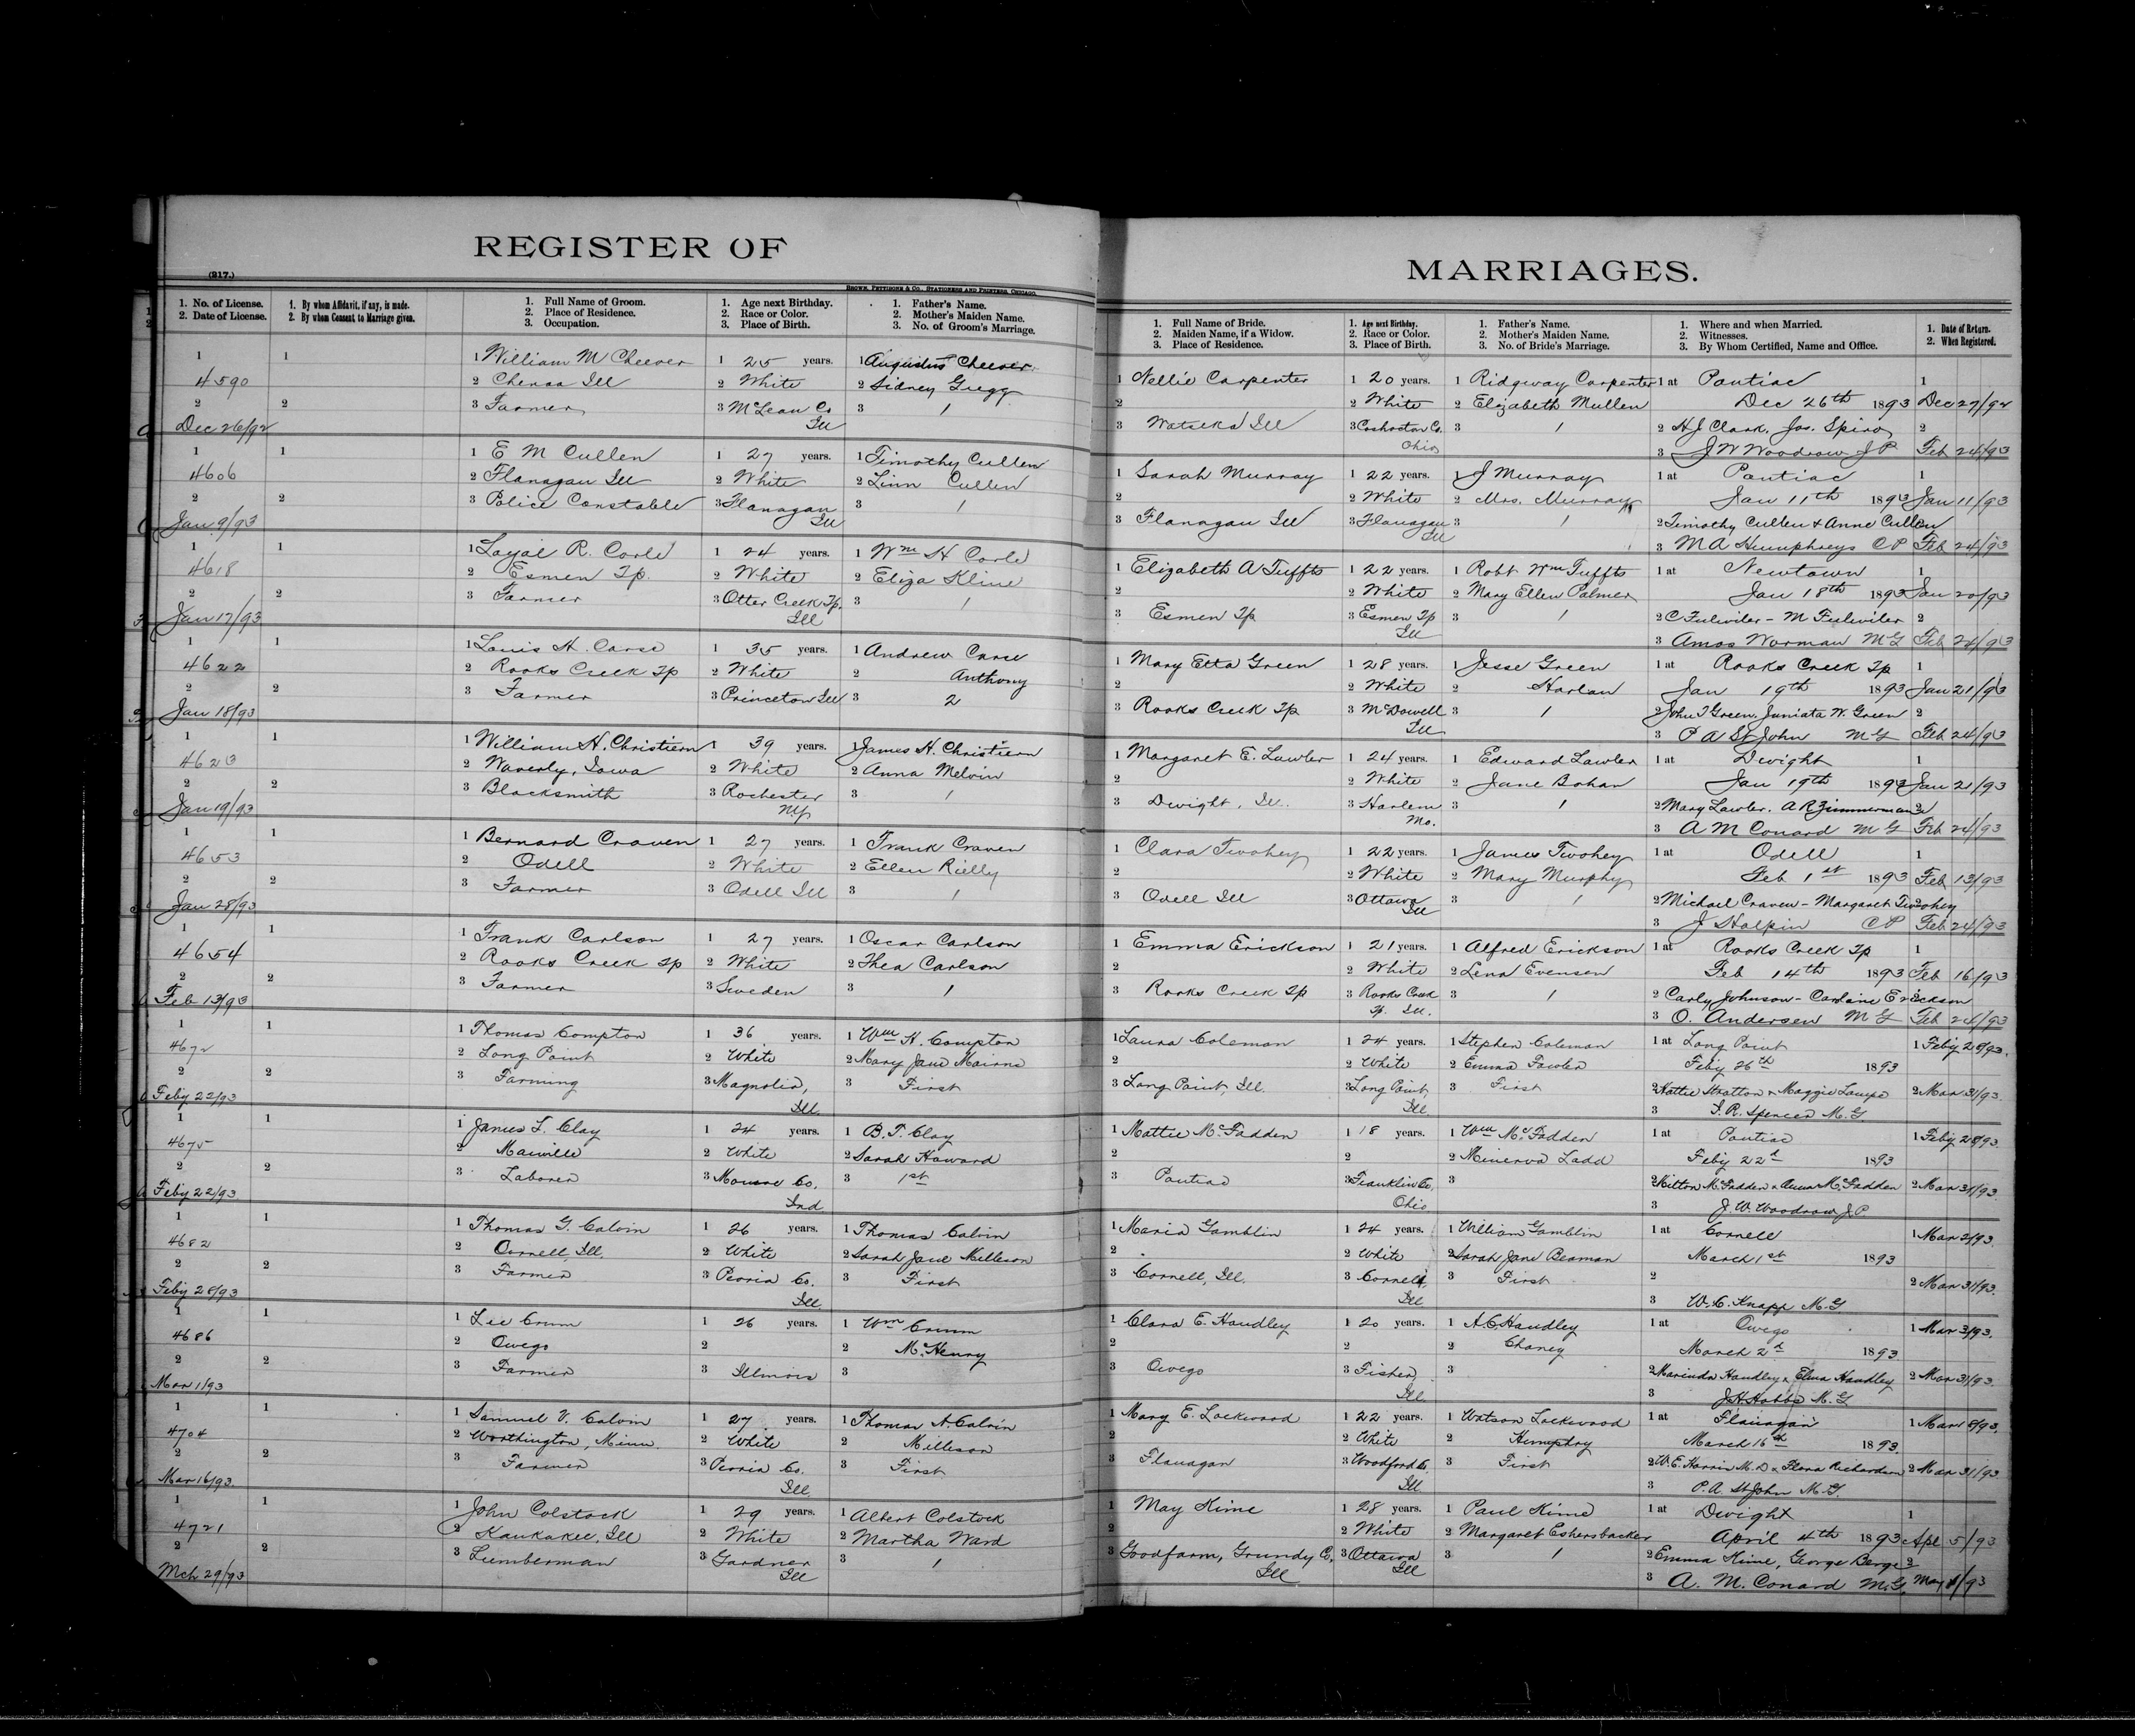 REGISTER OF
(217.)
BROWN, PETTIBONE & CO., STATIONERS AND PRINTERS, CHICAGO.
1. No. of License.
2. Date of License.
1. By whom Affidavit, if any, is made.
2. By whom Consent to Marriage given.
1. Full Name of Groom.
2. Place of Residence.
3. Occupation.
1. Age next Birthday.
2. Race or Color.
3. Place of Birth.
1. Father's Name.
2. Mother's Maiden Name.
3. No. of Groom's Marriage.
1 1 1 William M Cheever 1 25 years. 1 Augustus Cheever
4590 2 Chenoa Ill 2 White 2 Sidney Gregg
2 2 3 Farmer 3 McLean Co 3 1
Dec 26/92 Ill
1 1 1 E M Cullen 1 27 years. 1 Timothy Cullen
4606 2 Flanagan Ill 2 White 2 Linn Cullen
2 2 3 Police Constable 3 Flanagan 3 1
Jan 9/93 Ill
1 1 1 Loyal R. Corle 1 24 years. 1 Wm H Corle
4618 2 Esmen Tp. 2 White 2 Eliza Kline
2 2 3 Farmer 3 Otter Creek Tp. 3 1
Jan 17/93 Ill
1 1 1 Louis H. Carse 1 35 years. 1 Andrew Carse
4622 2 Rooks Creek Tp 2 White 2 Anthony
2 2 3 Farmer 3 Princeton Ill 3 2
Jan 18/93
1 1 1 William H. Christiern 1 39 years. 1 James H. Christiern
4623 2 Waverly, Iowa 2 White 2 Anna Melvin
2 2 3 Blacksmith 3 Rochester 3 1
Jan 19/93 N.Y.
1 1 1 Bernard Craven 1 27 years. 1 Frank Craven
4653 2 Odell 2 White 2 Ellen Rielly
2 2 3 Farmer 3 Odell Ill 3 1
Jan 28/93
1 1 1 Frank Carlson 1 27 years. 1 Oscar Carlson
4654 2 Rooks Creek Tp 2 White 2 Thea Carlson
2 2 3 Farmer 3 Sweden 3 1
Feb 13/93
1 1 1 Thomas Compton 1 36 years. 1 Wm H. Compton
4672 2 Long Point 2 White 2 Mary Jane Mairns
2 2 3 Farming 3 Magnolia, 3 First
Feby 22/93 Ill.
1 1 1 James L. Clay 1 24 years. 1 B. T. Clay
4675 2 2 White 2 Sarah Howard
2 2 3 Laborer 3 Monroe Co. 3 1st
Feby 22/93 Ind
1 1 1 Thomas G. Calvin 1 26 years. 1 Thomas Calvin
4682 2 Cornell, Ill. 2 White 2 Sarah Jane Milleson
2 2 3 Farmer 3 Peoria Co. 3 First
Feby 28/93 Ill.
1 1 1 Lee Crum 1 26 years. 1 Wm Crum
4686 2 Owego 2 2 McHenry
2 2 3 Farmer 3 Illinois 3
Mar 1/93
1 1 1 Samuel V. Calvin 1 27 years. 1 Thomas A Calvin
4704 2 Worthington, Minn. 2 White 2 Milleson
2 2 3 Farmer 3 Peoria Co. 3 First
Mar 16/93 Ill.
1 1 1 John Colstock 1 29 years. 1 Albert Colstock
4721 2 Kankakee, Ill 2 White 2 Martha Ward
2 2 3 Lumberman 3 Gardner 3 1
Mch 29/93 Ill
MARRIAGES.
1. Full Name of Bride.
2. Maiden Name, if a Widow.
3. Place of Residence.
1. Age next Birthday.
2. Race or Color.
3. Place of Birth.
1. Father's Name.
2. Mother's Maiden Name.
3. No. of Bride's Marriage.
1. Where and when Married.
2. Witnesses.
3. By Whom Certified, Name and Office.
1. Date of Return.
2. When Registered.
1 Nellie Carpenter 1 20 years. 1 Ridgway Carpenter 1 at Pontiac 1
2 2 White 2 Elizabeth Mullen Dec 26th 1893 Dec 27/92
3 Watseka Ill 3 Coshocton Co. 3 1 2 H J Clark, Jos. Spiro 2
Ohio 3 J W Woodrow J P Feb 24/93
1 Sarah Murray 1 22 years. 1 J Murray 1 at Pontiac 1
2 2 White 2 Mrs. Murray Jan 11th 1893 Jan 11/93
3 Flanagan Ill 3 Flanagan 3 1 2 Timothy Cullen & Anne Cullen
Ill 3 M A Humphreys C P Feb 24/93
1 Elizabeth A Tuffts 1 22 years. 1 Robt Wm Tuffts 1 at Newtown 1
2 2 White 2 Mary Ellen Palmer Jan 18th 1893 Jan 20/93
3 Esmen Tp 3 Esmen Tp 3 1 2 C Fulwiler - M Fulwiler 2
Ill 3 Amos Worman M G Feb 24/93
1 Mary Etta Green 1 28 years. 1 Jesse Green 1 at Rooks Creek Tp 1
2 2 White 2 Harlan Jan 19th 1893 Jan 21/93
3 Rooks Creek Tp 3 McDowell 3 1 2 John T Green, Juniata W. Green 2
Ill 3 P A St John M G Feb 24/93
1 Margaret E. Lawler 1 24 years. 1 Edward Lawler 1 at Dwight 1
2 2 White 2 Jane Bohan Jan 19th 1893 Jan 21/93
3 Dwight, Ill. 3 Harlem 3 1 2 Mary Lawler. A R Zimmerman 2
Mo. 3 A M Conard M G Feb 24/93
1 Clara Twohey 1 22 years. 1 James Twohey 1 at Odell 1
2 2 White 2 Mary Murphy Feb 1st 1893 Feb 13/93
3 Odell Ill 3 Ottawa 3 1 2 Michael Craven - Margaret Twohey
Ill 3 J Halpin C P Feb 24/93
1 Emma Erickson 1 21 years. 1 Alfred Erickson 1 at Rooks Creek Tp 1
2 2 White 2 Lena Evensen Feb 14th 1893 Feb 16/93
3 Rooks Creek Tp 3 Rooks Creek 3 1 2 Carly Johnson - Caroline Erickson
Tp. Ill. 3 O. Andersen M G Feb 24/93
1 Laura Coleman 1 24 years. 1 Stephen Coleman 1 at Long Point 1 Feby 28/93.
2 2 White 2 Emma Fowler Feby 26th 1893
3 Long Point, Ill. 3 Long Point, 3 First 2 Hattie Stratton & Maggie Lampe 2 Mar 31/93.
Ill. 3 Spencer M. G.
1 Mattie McFadden 1 18 years. 1 Wm McFadden 1 at Pontiac 1 Feby 28/93.
2 2 2 Minerva Ladd Feby 22d 1893
3 Pontiac 3 Franklin Co. 3 2 Milton McFadden & Anna McFadden 2 Mar 31/93.
Ohio 3 J. W. Woodrow J. P.
1 Maria Gamblin 1 24 years. 1 William Gamblin 1 at Cornell 1 Mar 2/93.
2 2 White 2 Sarah Jane Beaman March 1st 1893
3 Cornell, Ill. 3 Cornell, 3 First 2 2 Mar 31/93.
Ill 3 W. C. Knapp M. G.
1 Clara E. Handley 1 20 years. 1 A. C. Handley 1 at Owego 1 Mar 3/93.
2 2 2 Chaney March 2d 1893
3 Owego 3 Fisher, 3 2 Marinda Handley & Elma Handley 2 Mar 31/93.
Ill 3 J. H. Hobbs M. G
1 Mary E. Lockwood 1 22 years. 1 Watson Lockwood 1 at Flanagan 1 Mar 18/93.
2 2 White 2 Humphry March 16th 1893
3 Flanagan 3 Woodford Co. 3 First 2 W. E. Harris M. D & Flora Richardson 2 Mar 31/93
Ill 3 P. A. St John M. G.
1 May Kime 1 28 years. 1 Paul Kime 1 at Dwight 1
2 2 White 2 Margaret Eshersbacker April 4th 1893 Apl 5/93
3 Goodfarm, Grundy Co, 3 Ottawa 3 1 2 Emma Kime, George Barge 2
Ill Ill 3 A. M. Conard M. G. May 1/93